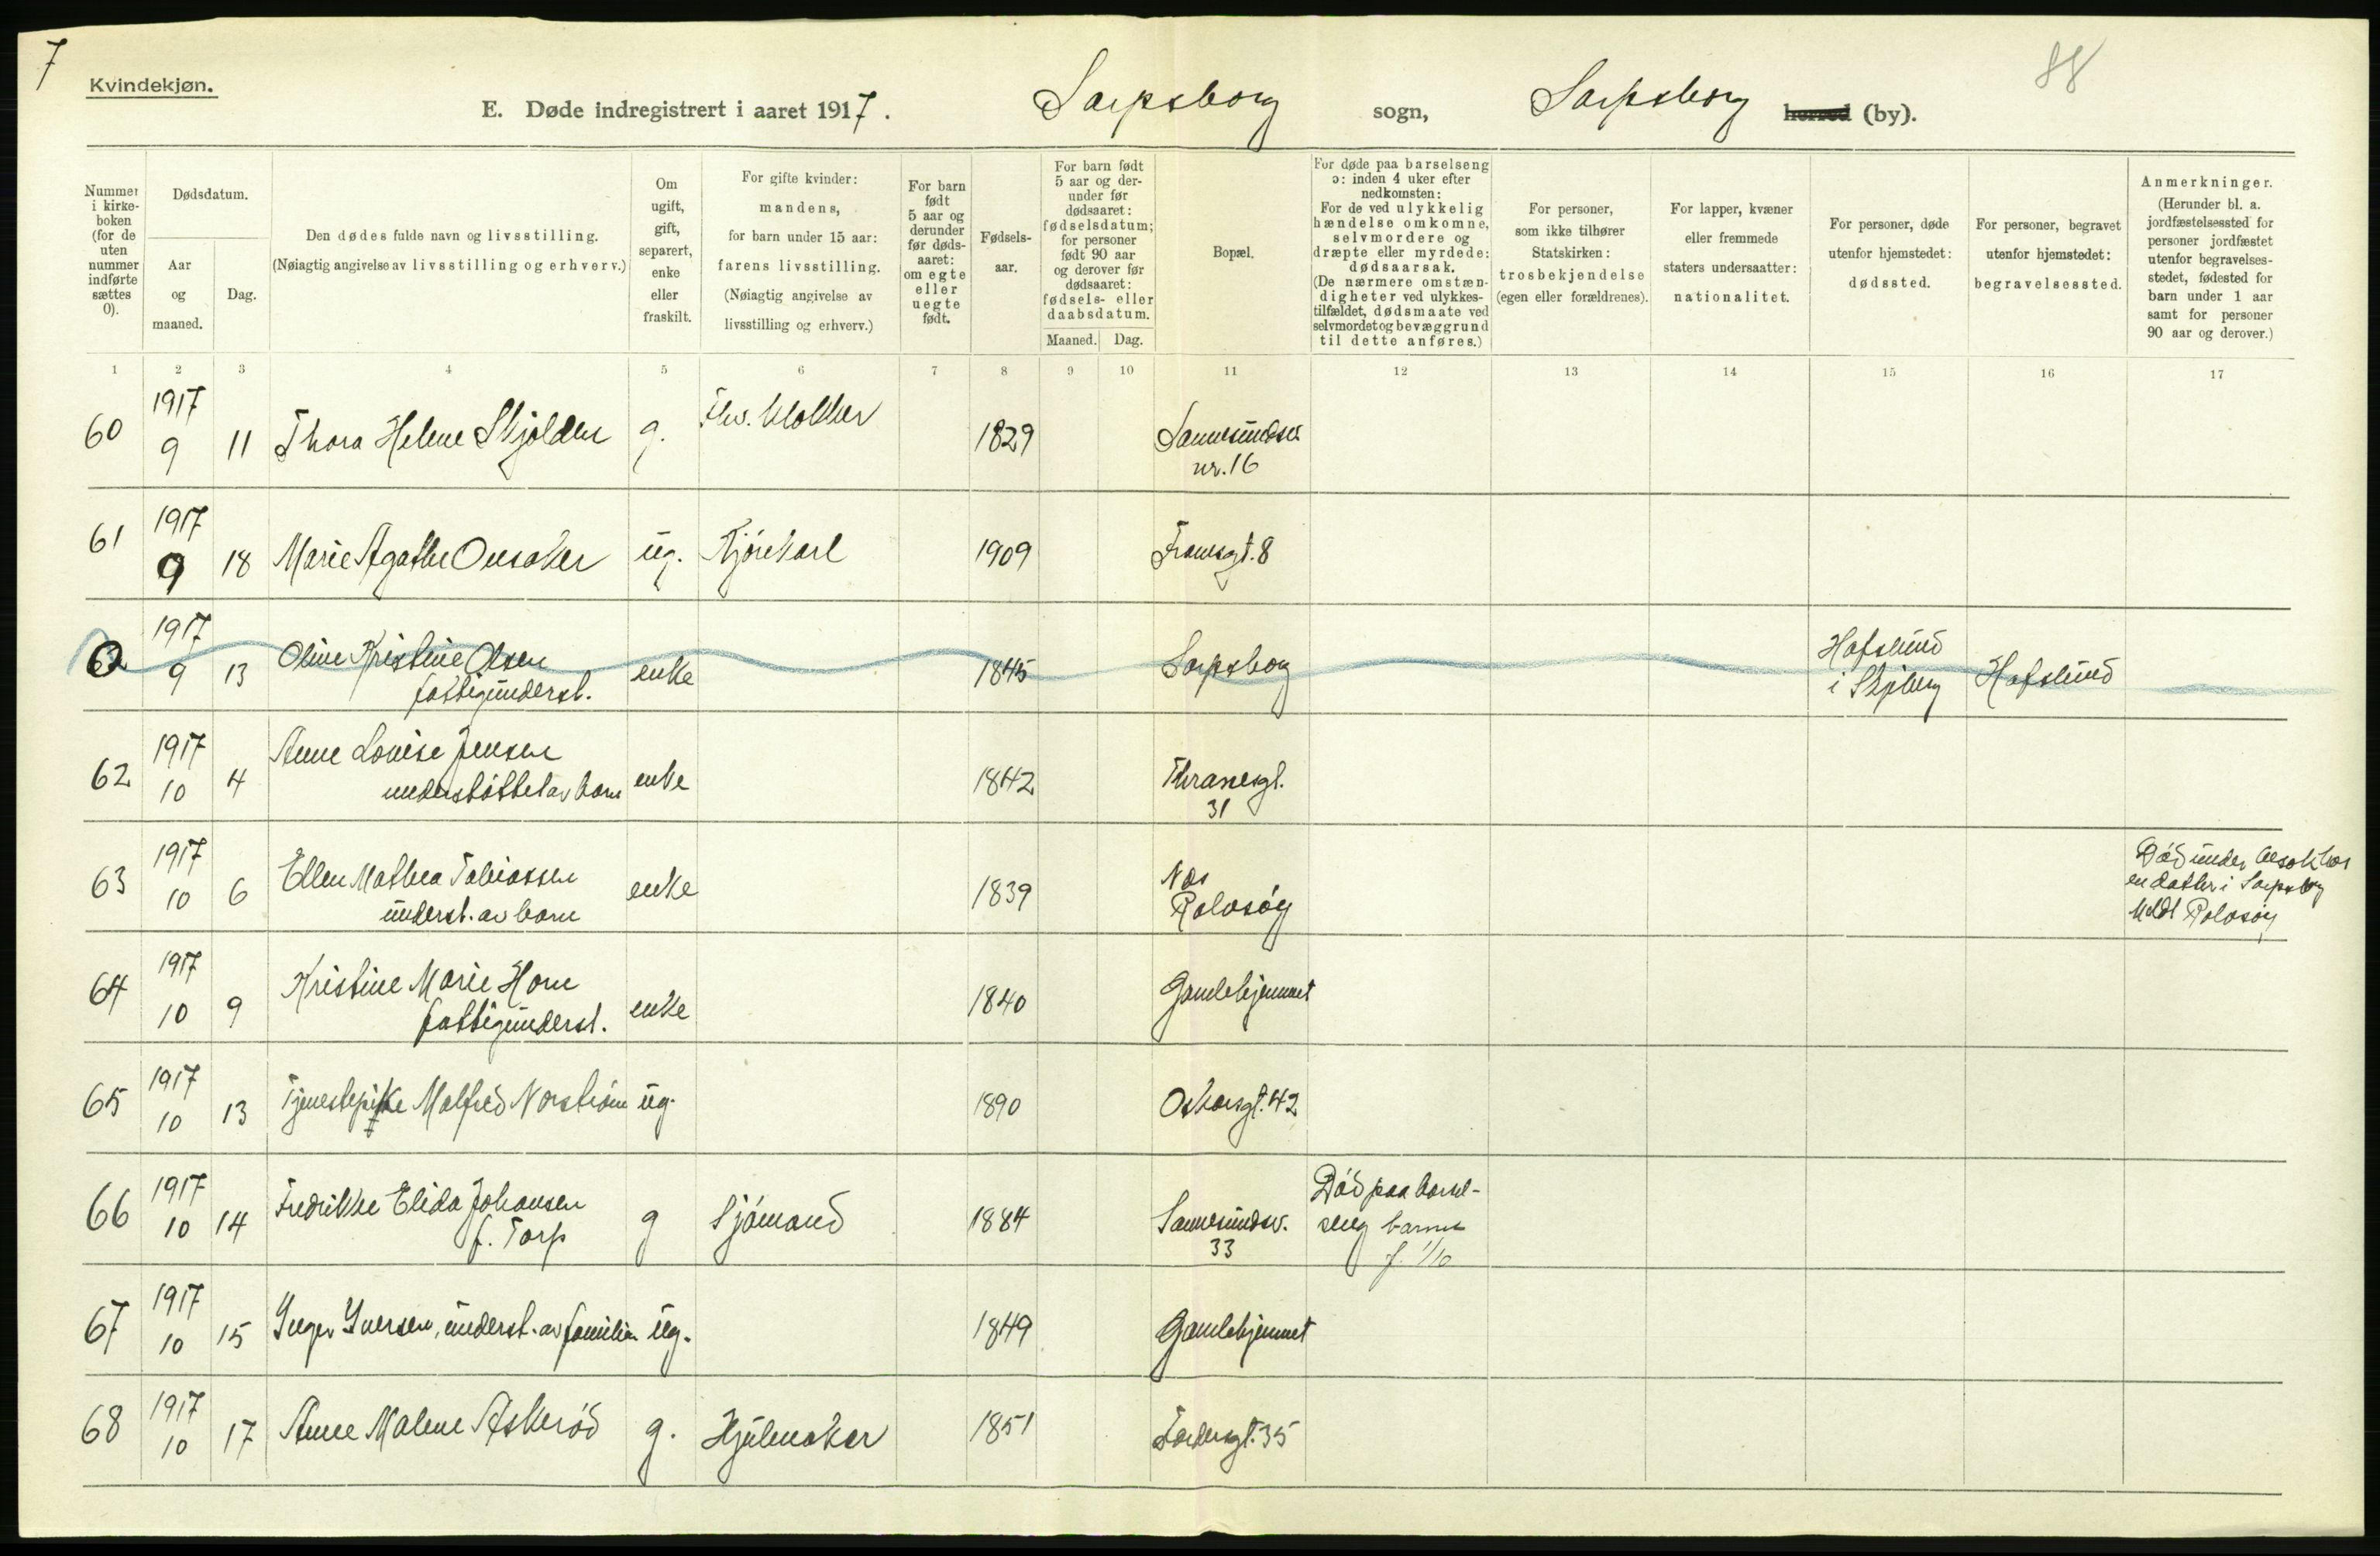 7
Kvindekjøn.
88
E. Døde indregistrert i aaret 1917.
Sarpsborg sogn, Sarpsborg herred (by).
Nummer i kirkeboken (for de uten nummer indførte sættes 0).
Dødsdatum.
Aar og maaned.
Dag.
Den dødes fulde navn og livsstilling.
(Nøiagtig angivelse av livsstilling og erhverv.)
Om ugift, gift, separert, enke eller fraskilt.
For gifte kvinder: mandens, for barn under 15 aar: farens livsstilling. (Nøiagtig angivelse av livsstilling og erhverv.)
For barn født 5 aar og derunder før dødsaaret: om egte eller uegte født.
Fødselsaar.
For barn født 5 aar og derunder før dødsaaret: fødselsdatum; for personer født 90 aar og derover før dødsaaret: fødsels- eller daabsdatum.
Maaned. Dag.
Bopæl.
For døde paa barselseng ɔ: inden 4 uker efter nedkomsten: For de ved ulykkelig hændelse omkomne, selvmordere og dræpte eller myrdede: dødsaarsak. (De nærmere omstændigheter ved ulykkestilfældet, dødsmaate ved selvmordet og bevæggrund til dette anføres.)
For personer, som ikke tilhører Statskirken: trosbekjendelse (egen eller forældrenes).
For lapper, kvæner eller fremmede staters undersaatter: nationalitet.
For personer, døde utenfor hjemstedet: dødssted.
For personer, begravet utenfor hjemstedet: begravelsessted.
Anmerkninger. (Herunder bl. a. jordfæstelsessted for personer jordfæstet utenfor begravelsesstedet, fødested for barn under 1 aar samt for personer 90 aar og derover.)
1 2 3 4 5 6 7 8 9 10 11 12 13 14 15 16 17
60 1917 9 11 Thora Helene Skjolden g. Fhv. klokker 1829 Sannesundsv. nr. 16
61 1917 9 18 Marie Agathe Onsaker ug. Kjørekarl 1909 8
0 1917 9 13 Oline Kristine Olsen fattigunderst. enke 1845 Sarpsborg Hafslund i Skjeberg Hafslund
62 1917 10 4 Anne Lovise Jensen understøttet av barn enke 1842 Thranesgt. 31
63 1917 10 6 Ellen Mathea Tobiassen underst. av barn enke 1839 Næs Rolvsøy Død under besøk hos en datter i Sarpsborg Meldt Rolvsøy
64 1917 10 9 Kristine Marie Horn fattigunderst. enke 1840 Gamlehjemmet
65 1917 10 13 Tjenestepike Malfred Norstrøm ug. 1890 Oskarsgt. 42
66 1917 10 14 Fredrikke Elida Johansen f. Torp g Sjømand 1884 Sannesundsv. 33 Død paa barsel- seng barnet f. 1/10
67 1917 10 15 Inger Iversen, underst. av familie ug. 1849 Gamlehjemmet
68 1917 10 17 Anne Malene Askerød g. Hjulmaker 1851 35